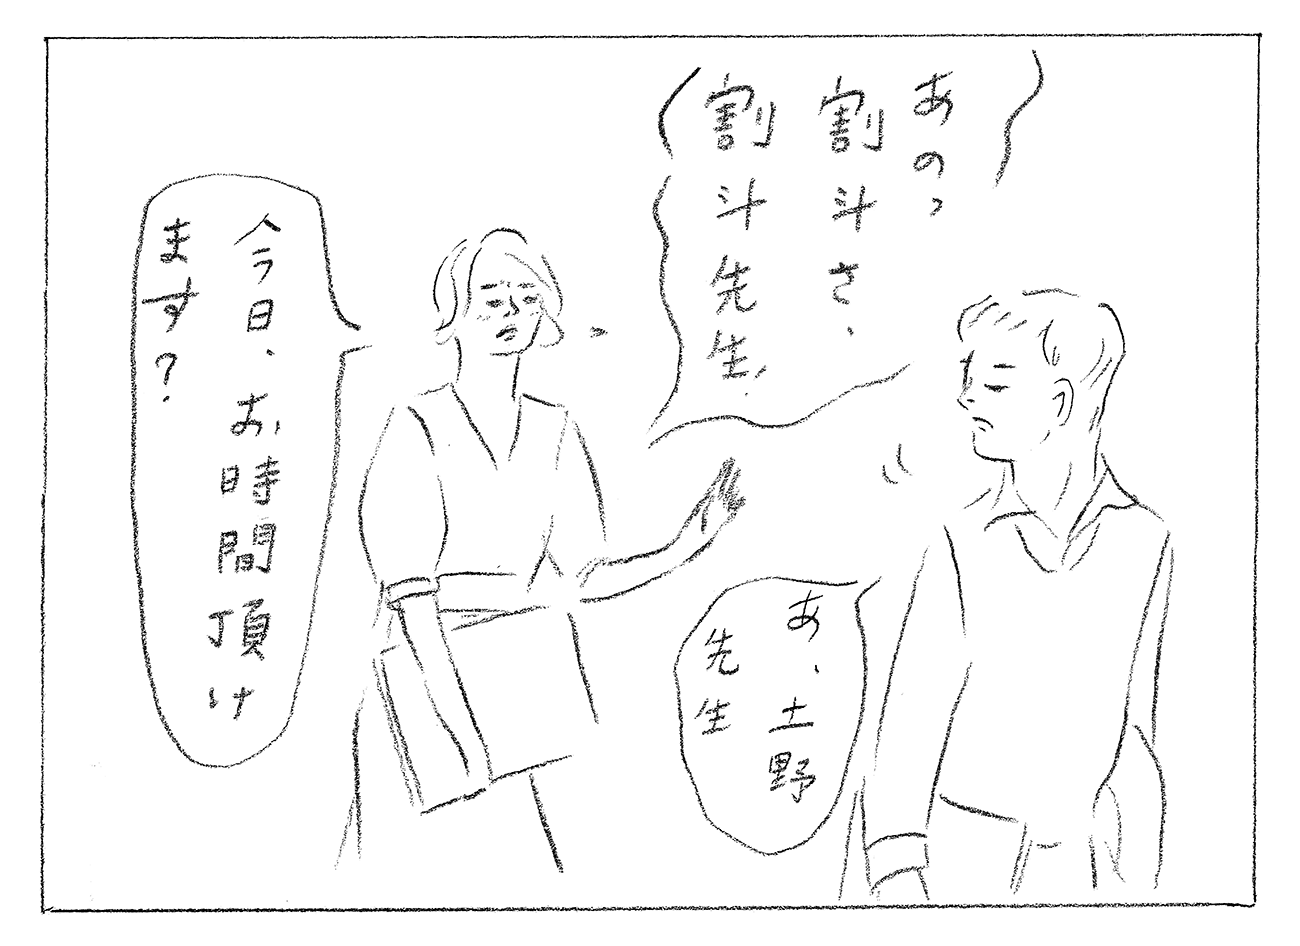 あのっ
割斗さ、
割斗先生、
あ、土野
先生
今日、お時間頂け
ます?